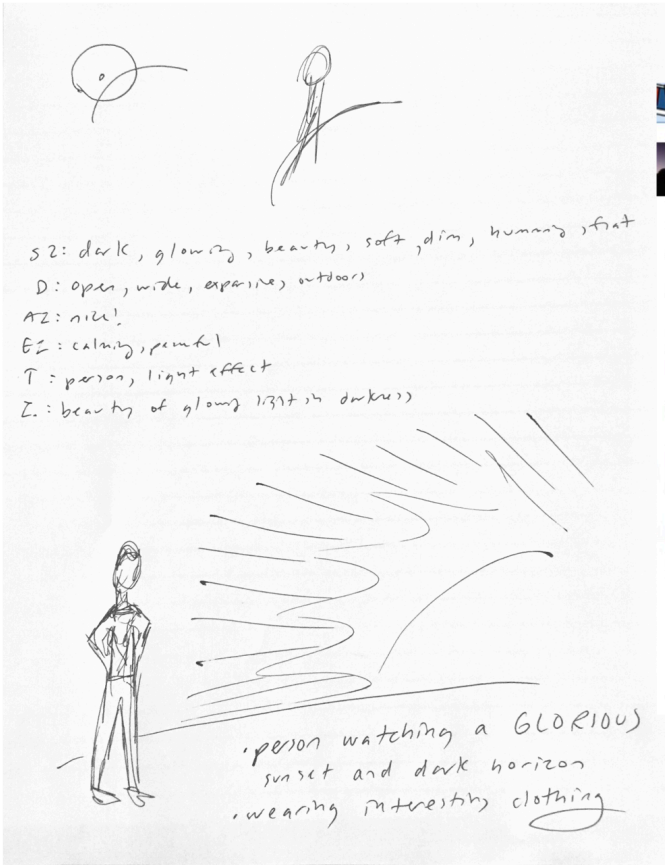 S2: dark, glowing, beauty, soft, dim, humming, flat
D: open, wide, expansive, outdoors
AI: nice!
EI: calming, peaceful
T: person, light effect
I.: beauty of glowing light in darkness
• person watching a GLORIOUS
sunset and dark horizon
• wearing interesting clothing